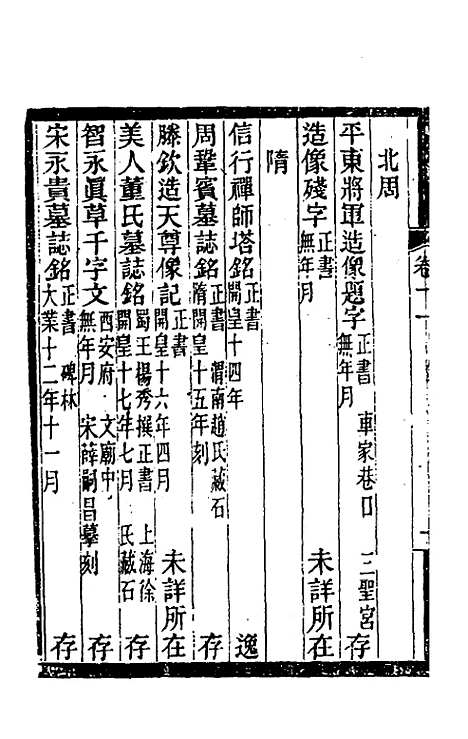 北周
平東將軍造像題字 正書 無年月 車家巷口 三聖宮 存
造像殘字 正書 無年月 未詳所在
隋
信行禪師塔銘 正書 開皇十四年 逸
周鞏賓墓誌銘 正書 隋開皇十五年刻 渭南趙氏藏石 存
滕欽造天尊像記 正書 開皇十六年四月 未詳所在
美人董氏墓誌銘 蜀王楊秀撰正書 開皇十七年七月 上海徐氏藏石 存
智永眞草千字文 西安府文廟中 無年月 宋薛嗣昌摹刻 存
宋永貴墓誌銘 正書 大業十二年十一月 碑林 存
卷十一